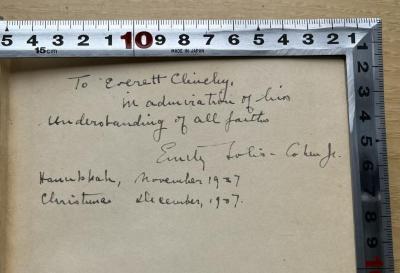 5 4 3 2 1 10 9 8 7 6 5 4 3 2 1
15cm MADE IN JAPAN
To Everett Clinchy,
in admiration of his
understanding of all faiths
Emily Solis-Cohen Jr.
Hanukkah, November 1937
Christmas December, 1937.
1 2 3 4 5 6 7 8 9